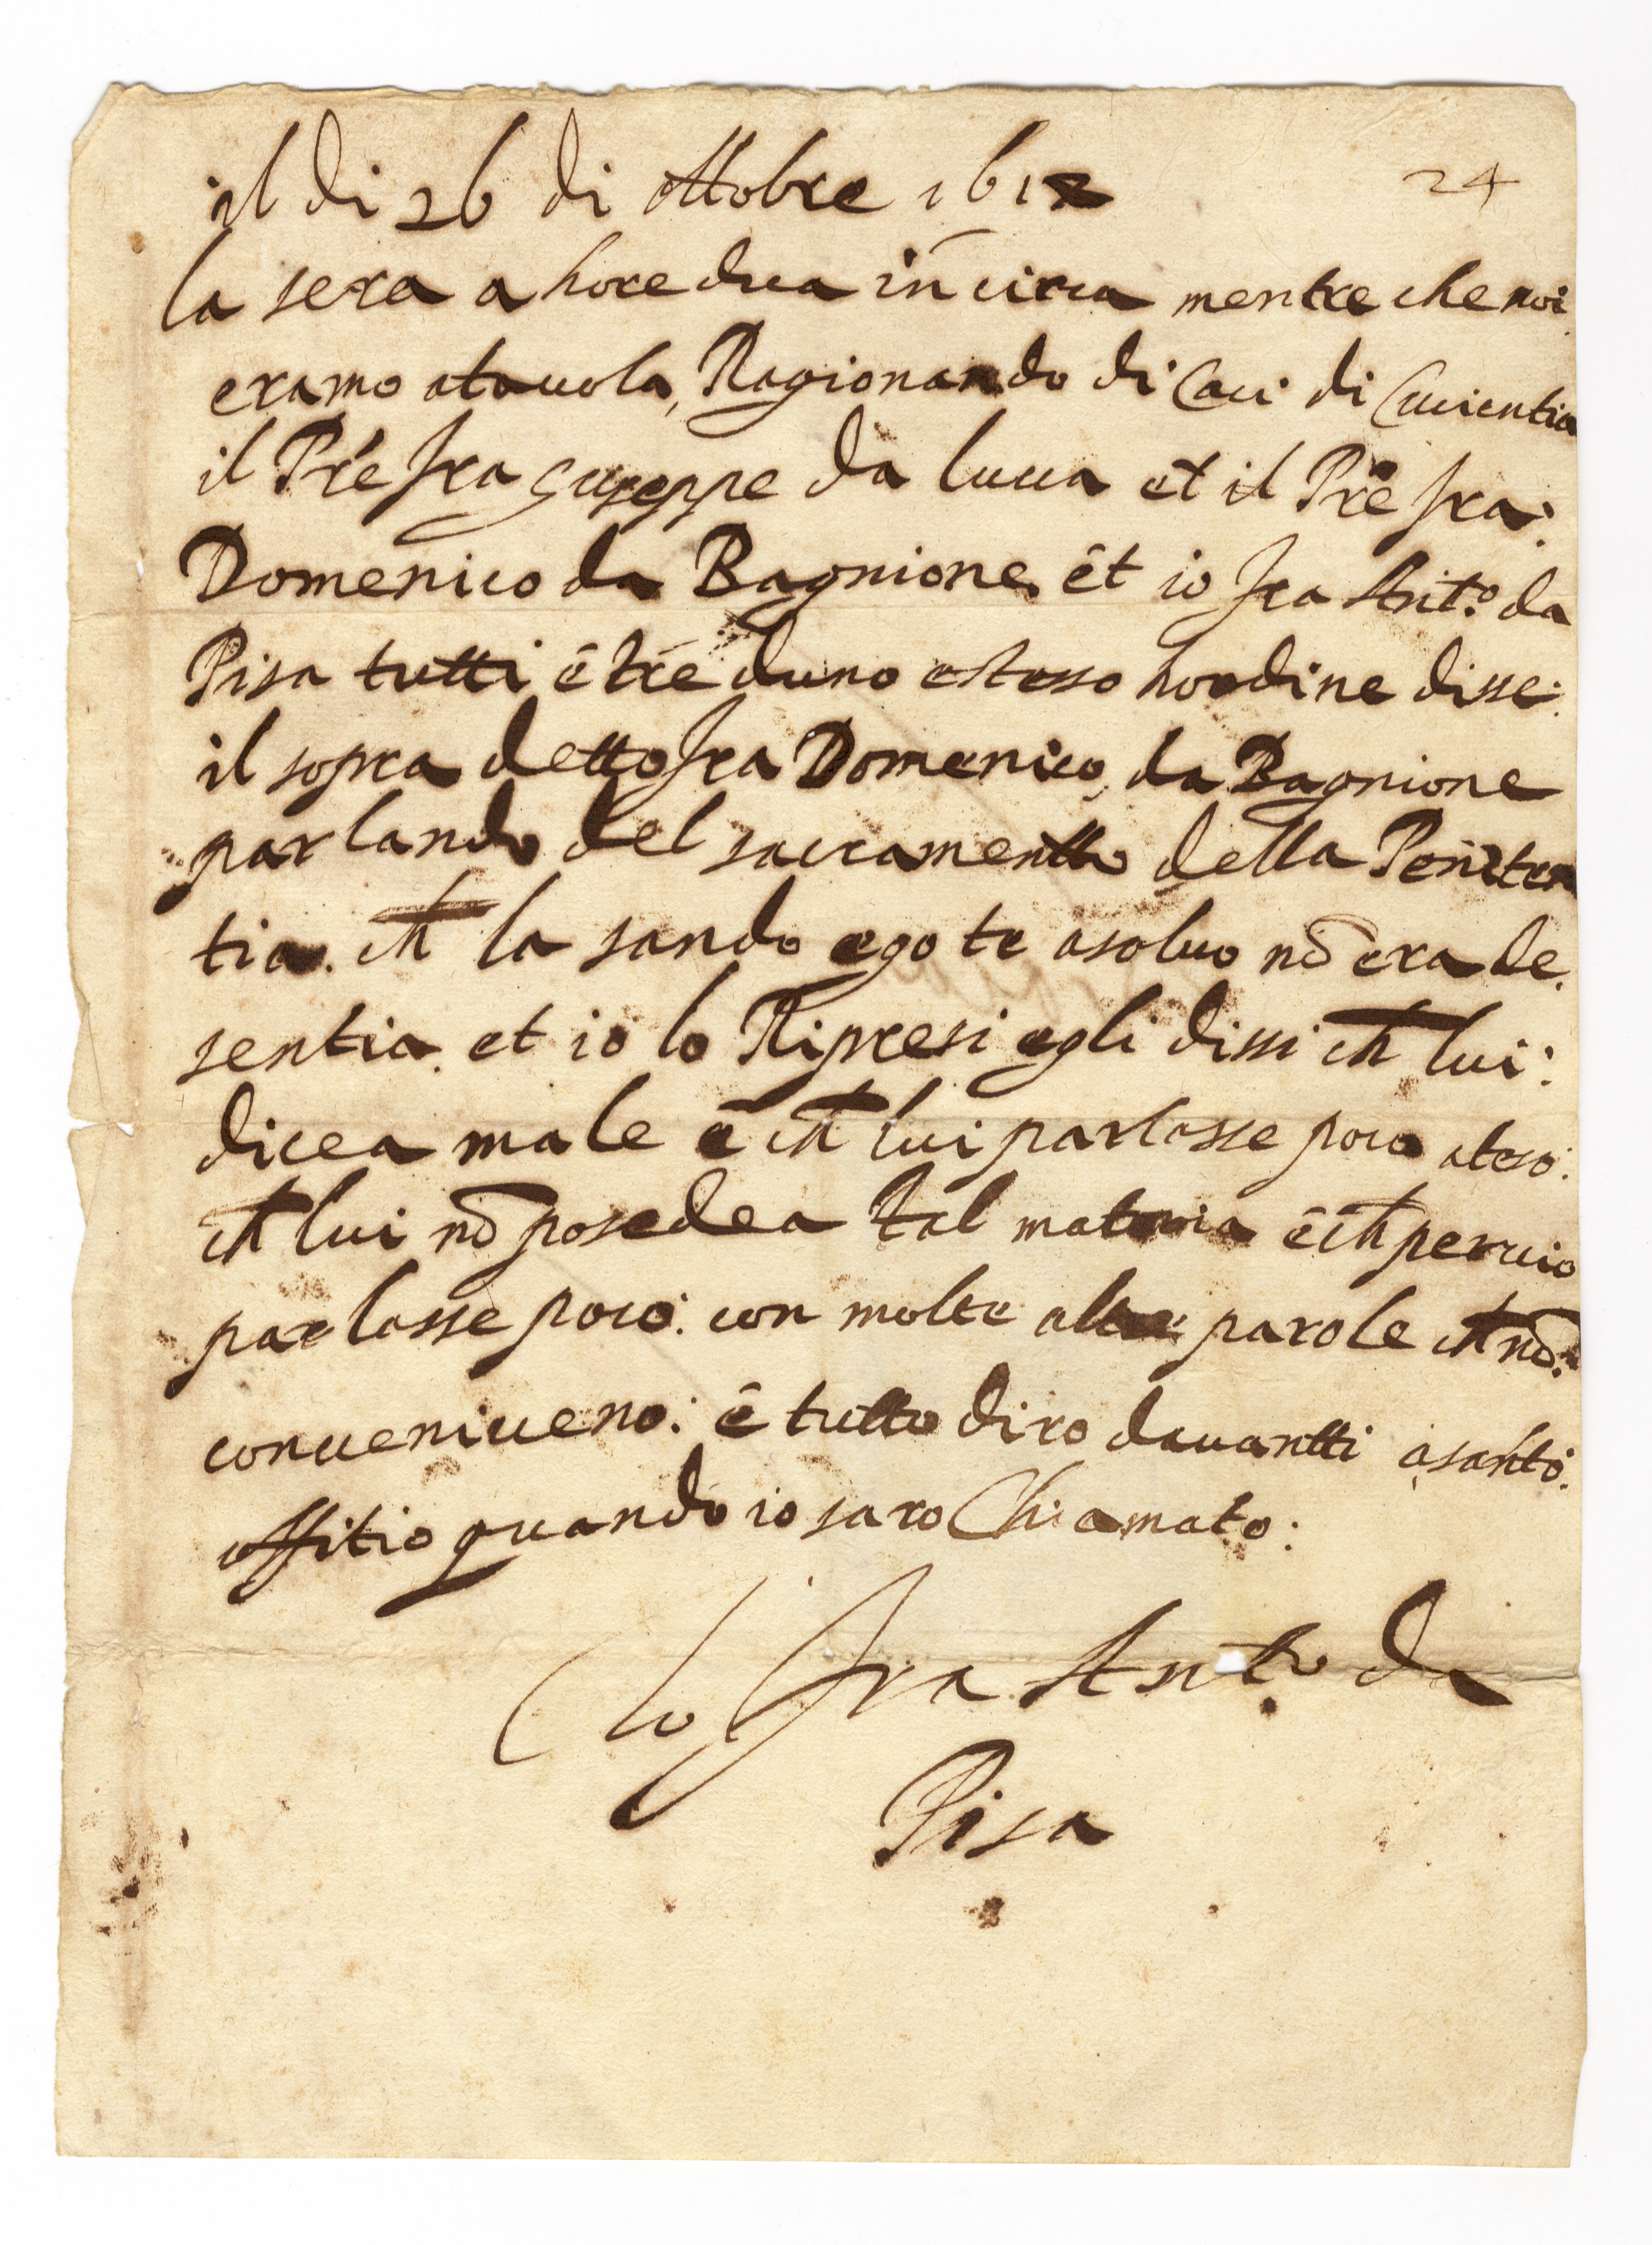 il di 26 di ottobre 1612
24
la sera a hore dua in circa mentre che noi
eramo atauola, Ragionando di Casi di Cucientia
il Pre fra Guseppe da lucca et il Pre fra
Domenico da Bagnione et io fra Ant.o da
Pisa tutti e tre duno stesso hordine disse
il sopra detto fra Domenico, da Bagnione
parlando del sacramento della Peniten
tia. ch la sando ego te asoluo nō era de
sentia. et io lo Ripresi egli dissi ch lui
dicea male e ch lui parlasse poco
ch lui nō posedea tal materia e ch percio
parlasse poco. con molte altre parole ch nō
conueniueno: e tutto diro dauantti asanto
offitio quando io saro Chiamato:
Io fra Ant.o da
Pisa